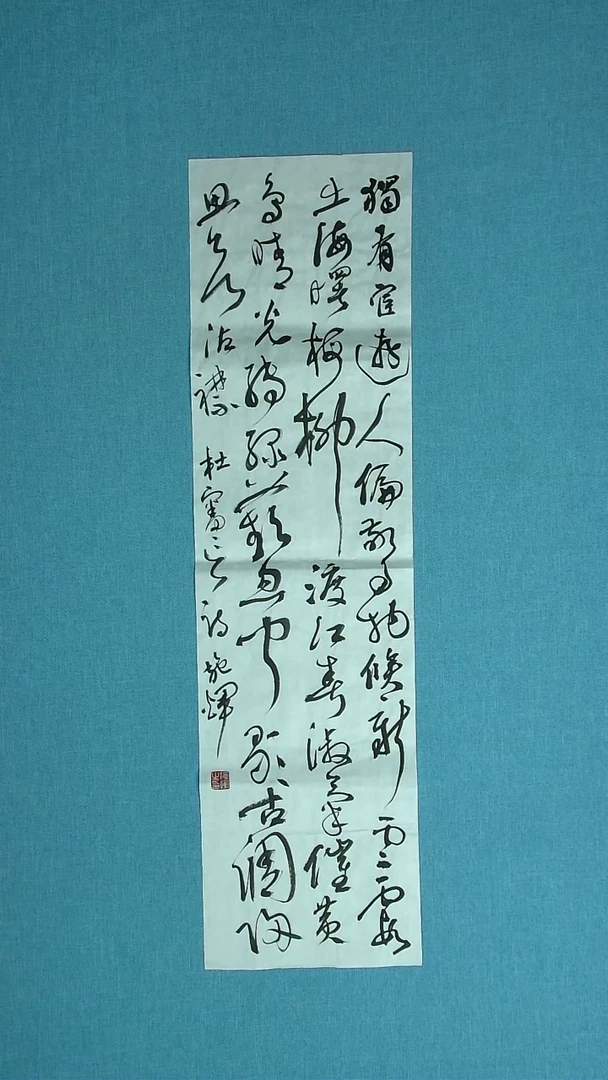 獨有宦遊人偏驚物候新雲霞
出海曙梅柳渡江春淑氣催黃
鳥晴光轉綠蘋忽聞歌古調歸
思欲沾襟 杜審言詩 施輝